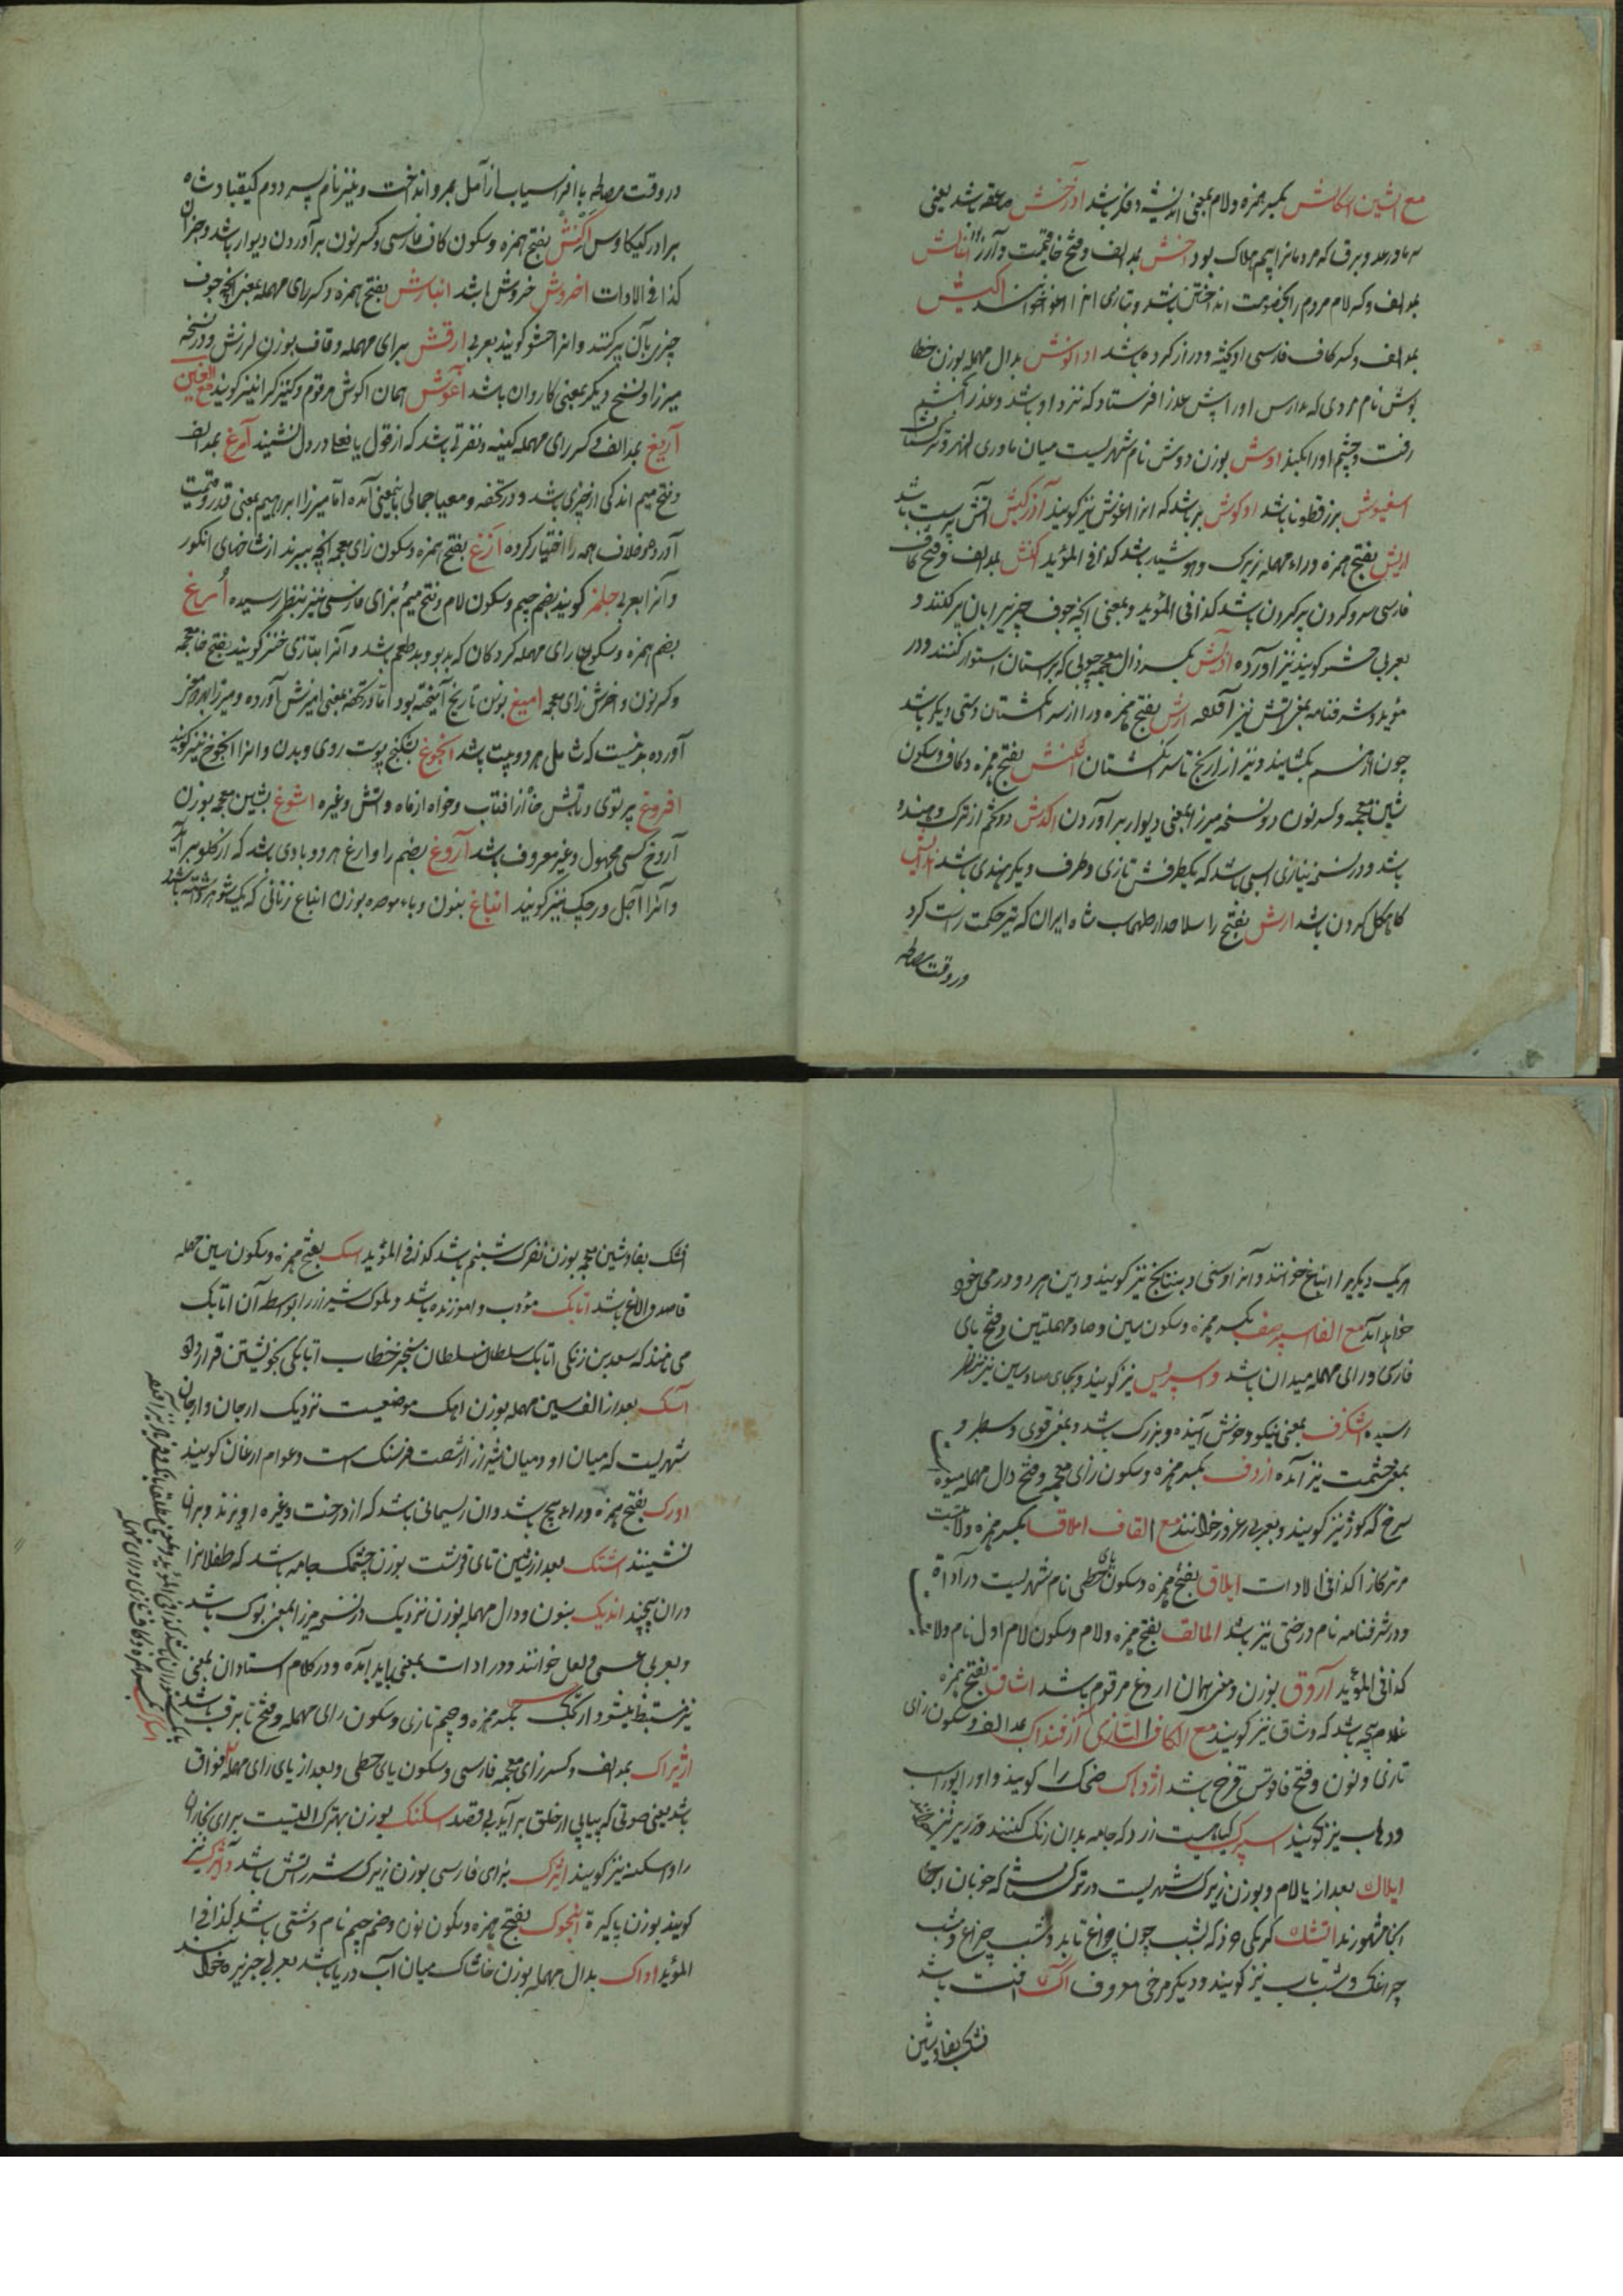 مع الشین اسکالش بکسر همزه ولام بمعنی اندیشه وفکر باشد آذرخش صاعقه باشد یعنی
بمد الف وکسر لام مردم را بخصومت انداختن باشد وبتازی انرا اغوا خوانند اکیش
بمد الف وکسر کاف فارسی اوکیشه ودراز کرده باشد اداکوش بدال مهمله بوزن خطا
پوش نام مردی که مدارس اورا پیش عذرا فرستاد که نزد او باشد وعذرا بخشم
رفت وچشم اورا بکند اوش بوزن دوش نام شهریست میان ماوری النهر وترکستان
اسفیوش بزرقطونا باشد اوکوش بر باشد که انرا اغوش نیز کویند آذرکیش آتش پرست باشد
اریش بفتح همزه وراء مهمله زیرک وهوشیار باشد کذا فی المؤید اکنش بمد الف وفتح کاف
فارسی سرو کردن پر کردن باشد کذا فی المؤید وبمعنی انچه جوف چیزیرا بان پر کنند و
بعربی حشو کویند نیز آورده اذیش بکسر ذال معجمه چوبی که بر استان استوار کنند ودر
مؤید وشرفنامه بمعنی اتش نیز ارش بفتح همزه ورا از سر انکشتان دستی دیکر باشد
چون از هم بکشایند ونیز از آرنج تا سر انکشتان اشکنش بفتح همزه وکاف وسکون
شین معجمه وکسر نون در ونسخه میرزا بمعنی دیوار برآوردن اکدش دو تخم از ترک وهند
باشد ودر نسخه نیازی اسپی باشد که یکطرفش تازی وطرف دیکر هندی باشد
کاهکل کردن باشد ارش بفتح را سلاحدار طهماسب شاه ایران که تیر حکمت راست کرد
در وقت مصالحه
در وقت مصالحه با افراسیاب از آمل بمرو انداخت ونیز نام پسر دوم کیقباد شاه
برادر کیکاوس اکنش بفتح همزه وسکون کاف فارسی وکسر نون برآوردن دیوار باشد وجز آن
کذا فی الادات اخروش خروش باشد انبارش بفتح همزه وکسر رای مهمله بمعنی انچه جوف
چیزی بآن پر کنند وانرا حشو کویند بعربی ارقش برای مهمله وقاف بوزن لرزش ودر نسخه
میرزا ونسخ دیکر بمعنی کاروان باشد آغوش همان اکوش مرقوم وکنیزکرا نیز کویند مع الغین
آریغ بمد الف وکسر رای مهمله کینه ونفرتی باشد که از قول یا فعل در دل نشیند آمرغ بمد الف
وفتح میم اندکی از چیزی باشد ودر تحفه ومعیار جمالی باینمعنی آمده اما میرزا ابراهیم بمعنی قدر وقیمت
آورده وخلاف همه را اختیار کرده آزغ بفتح همزه وسکون زای معجمه انچه ببرند از شاخهای انکور
وآنرا بعربی جلمز کویند بضم جیم وسکون لام وفتح میم بزای فارسی نیز بنظر رسیده أرغ
بضم همزه وسکون رای مهمله کردکان که بدبو وبدطعم باشد وآنرا بتازی خنز کویند بفتح خا معجمه
وکسر نون واخرش زای معجمه امیغ بوزن تاریخ آمیخته بود اما در تحفه بمعنی امیزش آورده ومیرزا
آورده بدینست که شامل هر دو بیت باشد انجوغ شکنج پوست روی وبدن وانرا انجوخ نیز کویند
افروغ پرتوی وتابش خواه از افتاب وخواه از ماه واتش وغیره اشوغ بشین معجمه بوزن
آروغ کسی مجهول وغیر معروف باشد آروغ بضم را وارغ هر دو بادی باشد که از کلو برآید
وآنرا آجل ورجک نیز کویند انباغ بنون وباء موحده بوزن انباع زنانی که یک شوهر داشته باشد
هر یک دیکریرا انباغ خوانند وآنرا وسنی وبنانج نیز کویند واین هر دو در محل خود
خواهد آمد مع الفا اسپرصف بکسر همزه وسکون سین وصاد مهملتین وفتح بای
فارسی ورای مهمله میدان باشد واسپریس نیز کویند وبجای صاد سین نیز بنظر
رسیده اشکرف بمعنی نیکو وخوش آینده وبزرک باشد وبمعنی قوی وسطبر و
بمعنی حشمت نیز آمده ازدف بکسر همزه وسکون زای معجمه وفتح دال مهمله میوه
سرخ که کوژ نیز کویند وبعربی زعرور خوانند مع القاف املاق بکسر همزه ولایتیست
مر ترکانرا کذا فی الادات ایلاق بفتح همزه وسکون یای حطی نام شهریست در آداة
ودر شرفنامه نام درختی نیز باشد المالق بفتح همزه ولام وسکون لام اول نام ولایت
کذا فی المؤید آروق بوزن ومعنی همان اروغ مرقوم باشد اشاق بفتح همزه
غلام بچه باشد که وشاق نیز کویند مع الکاف التازی آزفنداک بمد الف وسکون زای
تازی ونون وفتح فا قوس قزح باشد اژدهاک ضحاک را کویند واورا پوراسب
ودهاب نیز کویند اسپرک کیاهیست زرد که جامه بدان رنک کنند وزریر نیز خوانند
ایلاک بعد از یا لام وبوزن زیرک شهریست در ترکستان که خوبان
انجا مشهورند اتشک کرمکی خرد که بشب چون چراغ تابد وشب چراغ وشب
چراغک وشب تاب نیز کویند ودیکر مرضی معروف آک افت باشد
فشک بفا وشین
افشک بفا وشین معجمه بوزن نفرک شبنم باشد کذا فی المؤید اسک بفتح همزه وسکون سین مهمله
قاصد والاغ باشد اتابک مؤدب وآموزنده باشد وملوک شیراز را بواسطه آن اتابک
می نامند که سعد بن زنکی اتابک سلطان سنجر خطاب اتابکی بخویشتن قرار داد
آسک بعد از الف سین مهمله بوزن اهک موضعیست نزدیک ارجان وارجان
شهریست که میان او ومیان شیراز شصت فرسنک است وعوام ارغان کویند
اورک بفتح همزه وراء باشد وان ریسمانی باشد که از درخت وغیره اویزند وبران
نشینند اشتک بعد از شین تای قرشت بوزن چشمک جامه باشد که طفلانرا
دران پیچند اندیک بنون ودال مهمله بوزن نزدیک در نسخه میرزا بمعنی بوک باشد
وبعربی عسی ولعل خوانند ودر ادات بمعنی باید آمده ودر کلام استادان بمعنی
نیز مستنبط میشود ارنجک بکسر همزه وجیم تازی وسکون رای مهمله وفتح تا برق باشد
اژیراک بمد الف وکسر زای معجمه فارسی وسکون یای حطی وبعد از یای رای مهمله فواق
باشد یعنی صوتی که پیاپی از حلق برآید بی قصد اسکنک بوزن بهترک التیست برای نجاران
را واسکنه نیز کویند ایژک بزای فارسی بوزن زیرک شرر اتش باشد وآیژک نیز
کویند بوزن پاکیزه انجوک بفتح همزه وسکون نون وضم جیم نام دشتی باشد کذا فی
المؤید اداک بدال مهمله بوزن خاشاک میان آب دریا باشد بعربی جزیره خوانند